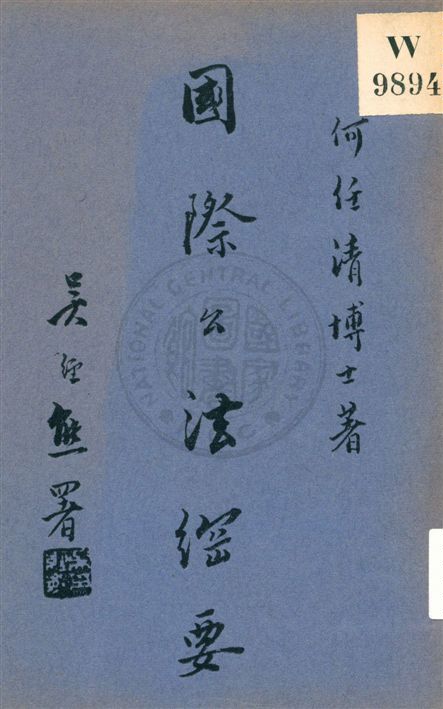 W
9894
何任清博士著
國際公法綱要
吳經熊署
NATIONAL CENTRAL LIBRARY